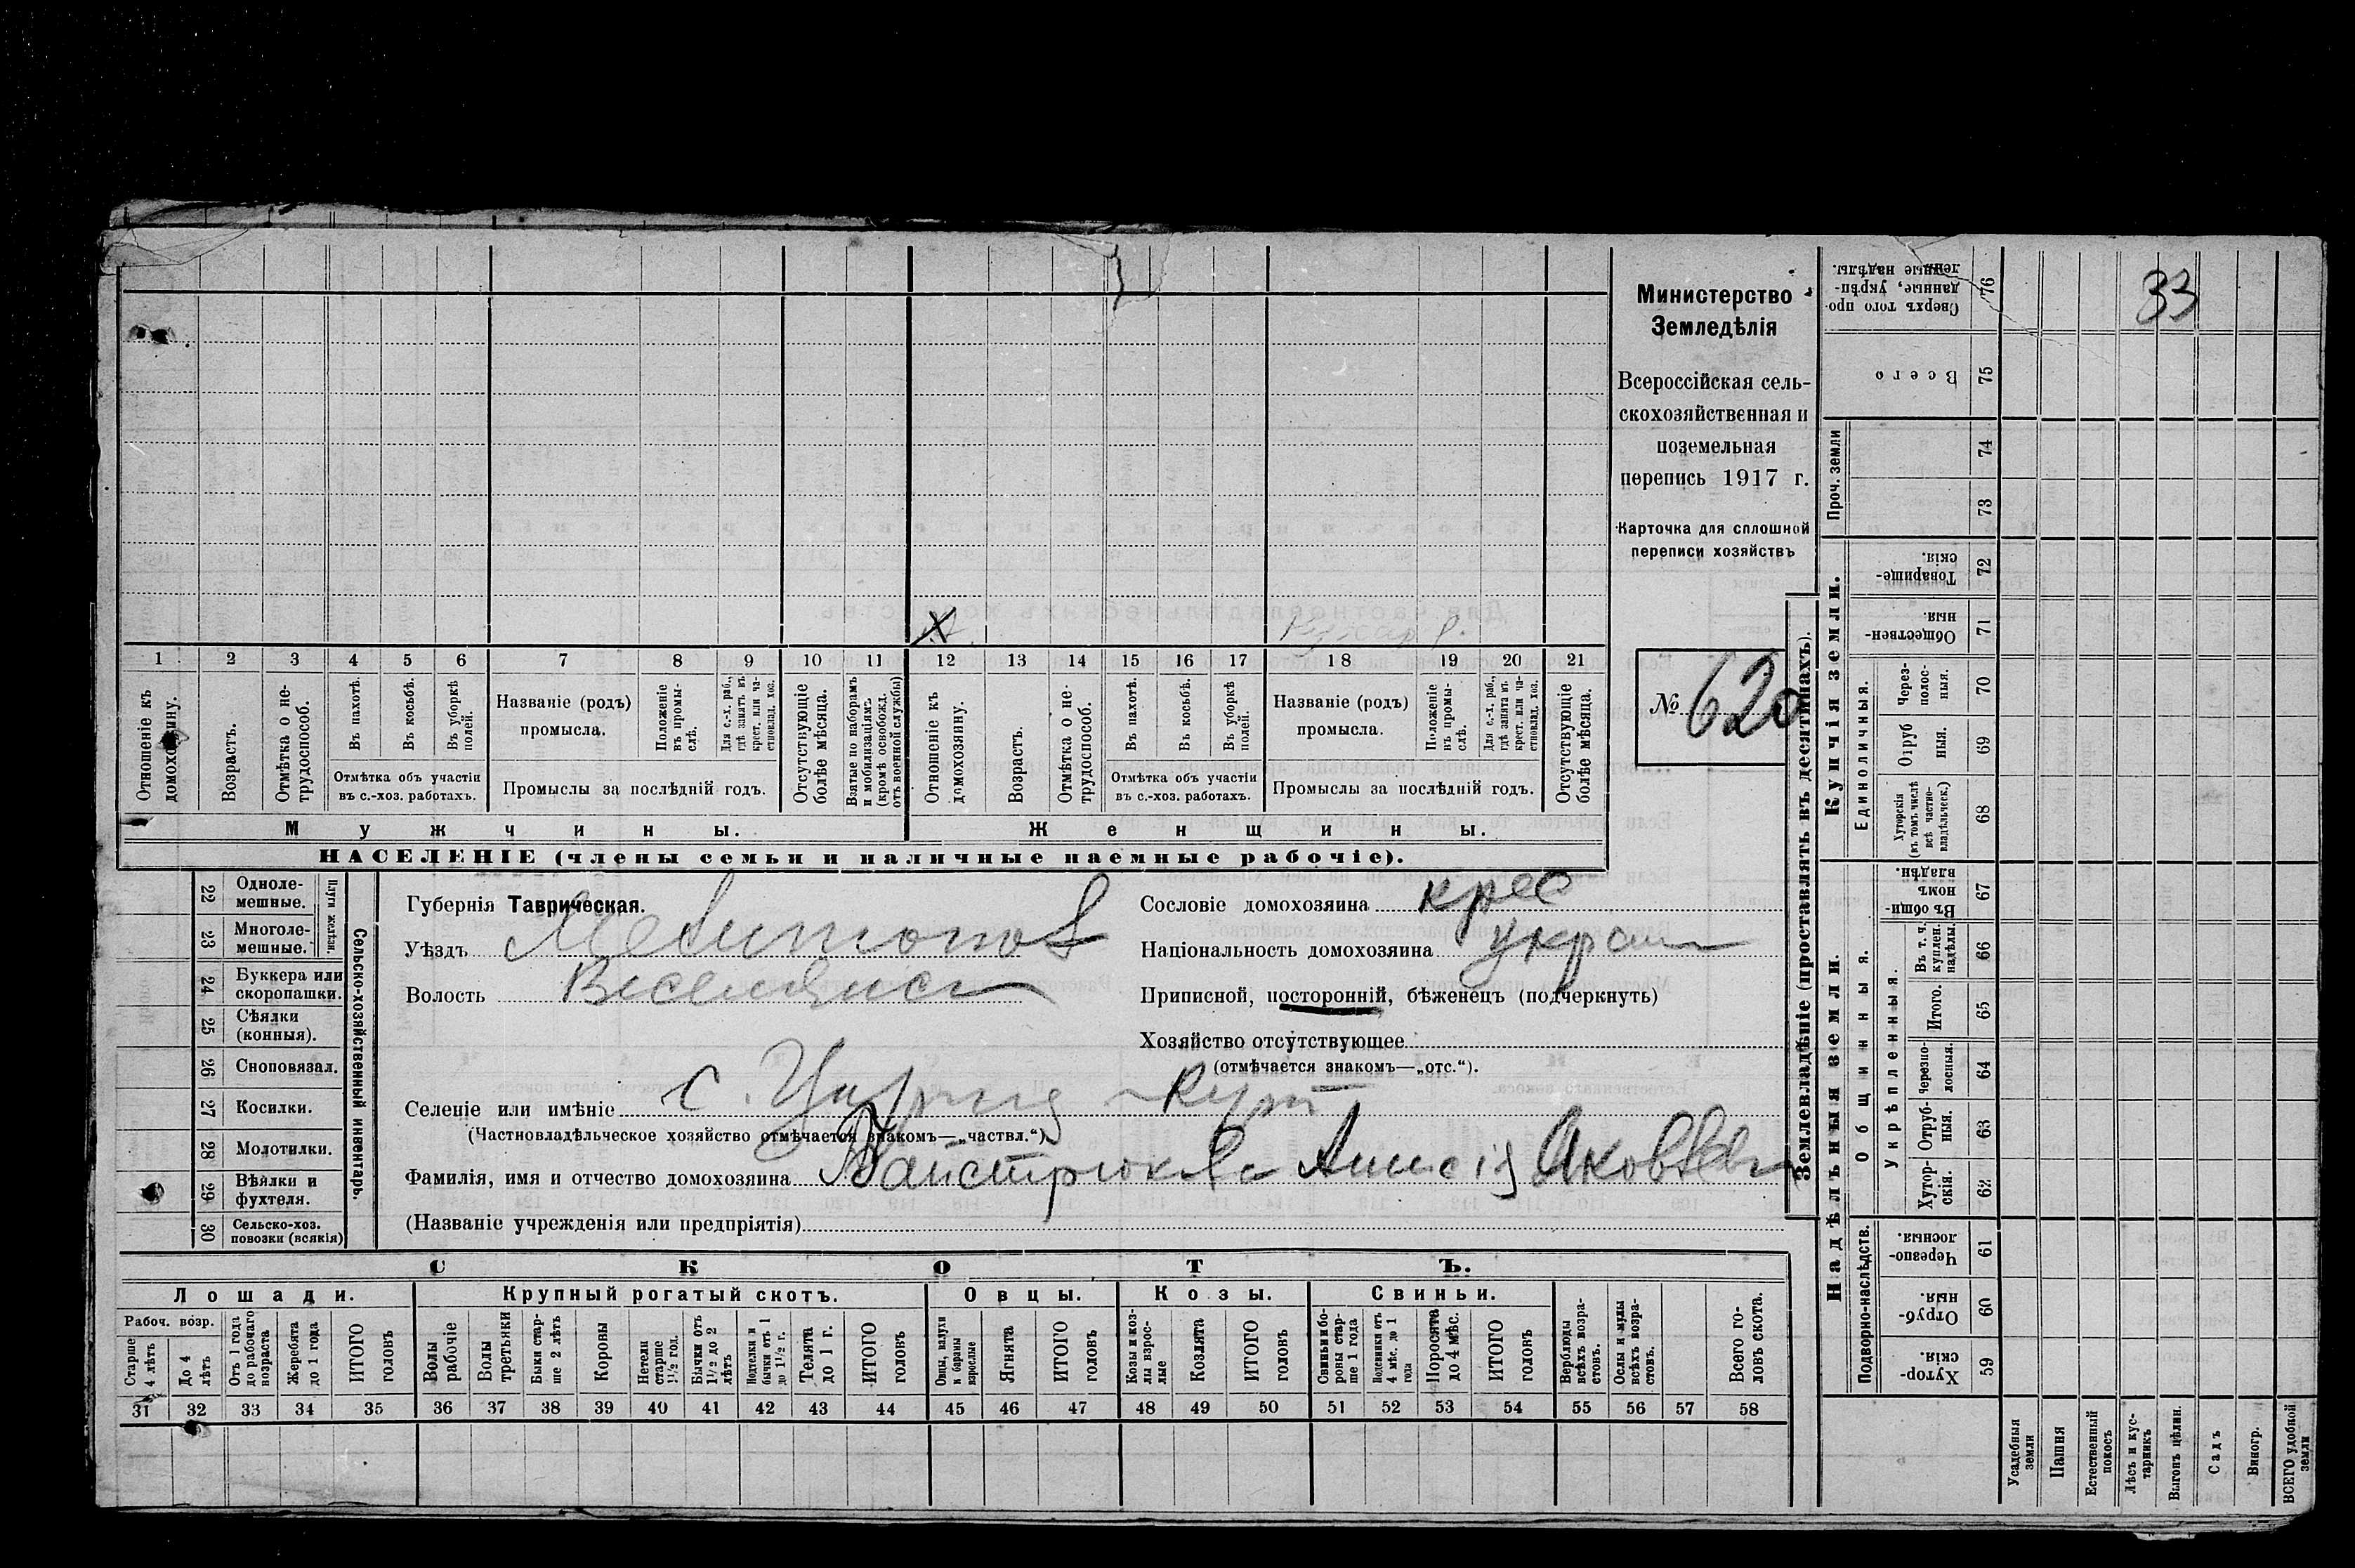 Министерство
Земледѣлія
Всероссійская сель-
скохозяйственная и
поземельная
перепись 1917 г.
Карточка для сплошной
переписи хозяйствъ
№ 620
33
1 2 3 4 5 6 7 8 9 10 11 12 13 14 15 16 17 18 19 20 21
Отношеніе къ домохозяину.
Возрастъ.
Отмѣтка о не-трудоспособ.
Въ пахотѣ.
Въ косьбѣ.
Въ уборкѣ полей.
Отмѣтка объ участіи
въ с.-хоз. работахъ.
Названіе (родъ)
промысла.
Положеніе въ промы-слѣ.
Для с.-х. раб., гдѣ занятъ въ крест. или ча-стновлад. хоз.
Промыслы за послѣдній годъ.
Отсутствующіе болѣе мѣсяца.
Взятые по наборамъ и мобилизаціямъ (кромѣ освобожд. отъ военной службы)
Отношеніе къ домохозяину.
Возрастъ.
Отмѣтка о не-трудоспособ.
Въ пахотѣ.
Въ косьбѣ.
Въ уборкѣ полей.
Отмѣтка объ участіи
въ с.-хоз. работахъ.
Названіе (родъ)
промысла.
Положеніе въ промы-слѣ.
Для с.-х. раб., гдѣ занята въ крест. или ча-стновлад. хоз.
Промыслы за послѣдній годъ.
Отсутствующіе болѣе мѣсяца.
Мужчины.
Женщины.
НАСЕЛЕНІЕ (члены семьи и наличные наемные рабочіе).
Сельско-хозяйственный инвентарь.
Плуги желѣзн.
22 Одноле-мешные.
23 Многоле-мешные.
24 Буккера или скоропашки.
25 Сѣялки (конныя).
26 Сноповязал.
27 Косилки.
28 Молотилки.
29 Вѣялки и фухтеля.
30 Сельско-хоз. повозки (всякія)
Губернія Таврическая.
Уѣздъ Мелитопол
Волость
Селеніе или имѣніе с. Кут
(Частновладѣльческое хозяйство отмѣчается знакомъ—„частвл.“)
Фамилія, имя и отчество домохозяина Анисія Яковлев
(Названіе учрежденія или предпріятія)
Сословіе домохозяина крес
Національность домохозяина украин
Приписной, посторонній, бѣженецъ (подчеркнуть)
Хозяйство отсутствующее
(отмѣчается знакомъ—„отс.“).
СКОТЪ.
Лошади.
Крупный рогатый скотъ.
Овцы.
Козы.
Свиньи.
Рабоч. возр.
Старше 4 лѣтъ
До 4 лѣтъ
Отъ 1 года до рабочаго возраста
Жеребята до 1 года
ИТОГО головъ
Волы рабочіе
Волы третьяки
Быки стар-ше 2 лѣтъ
Коровы
Нетели старше 1½ год.
Бычки отъ 1½ до 2 лѣтъ
Подтелки и бычки отъ 1 до 1½ г.
Телята до 1 г.
ИТОГО головъ
Овцы, валухи и бараны взрослые
Ягнята
ИТОГО головъ
Козы и коз-лы взрос-лые
Козлята
ИТОГО головъ
Свиньи и бо-ровы стар-ше 1 года
Подсвинки отъ 4 мѣс. до 1 года
Поросята до 4 мѣс.
ИТОГО головъ
Верблюды всѣхъ возра-стовъ.
Ослы и мулы всѣхъ возра-стовъ.
Всего го-ловъ скота.
31 32 33 34 35 36 37 38 39 40 41 42 43 44 45 46 47 48 49 50 51 52 53 54 55 56 57 58
Землевладѣніе (проставлять въ десятинахъ).
Надѣльныя земли.
Купчія земли.
Проч. земли
Подворно-наслѣдств.
Общинныя.
Укрѣпленныя.
Единоличныя.
76 Сверхъ того про-данные, укрѣп-ленные надѣлы.
75 Всего
74
73
72 Товарище-скія.
71 Обществен-ныя.
70 Через-полос-ныя.
69 Отруб-ныя.
68 Хуторскія (въ томъ числѣ всѣ частно-владѣльческ.)
67 Въ общи-номъ владѣн.
66 Въ т. ч. куплен. надѣлы.
65 Итого.
64 Черезпо-лосныя.
63 Отруб-ныя.
62 Хутор-скія.
61 Черезпо-лосныя.
60 Отруб-ныя.
59 Хутор-скія.
Усадебныя земли
Пашня
Естественный покосъ
Лѣсъ и кус-тарникъ
Выгонъ цѣлин.
Садъ
Виногр.
ВСЕГО удобной земли